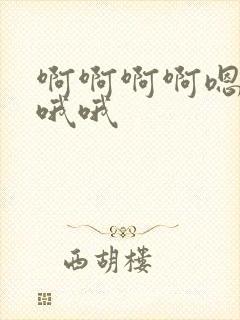 啊啊啊啊嗯
哦哦
西胡楼